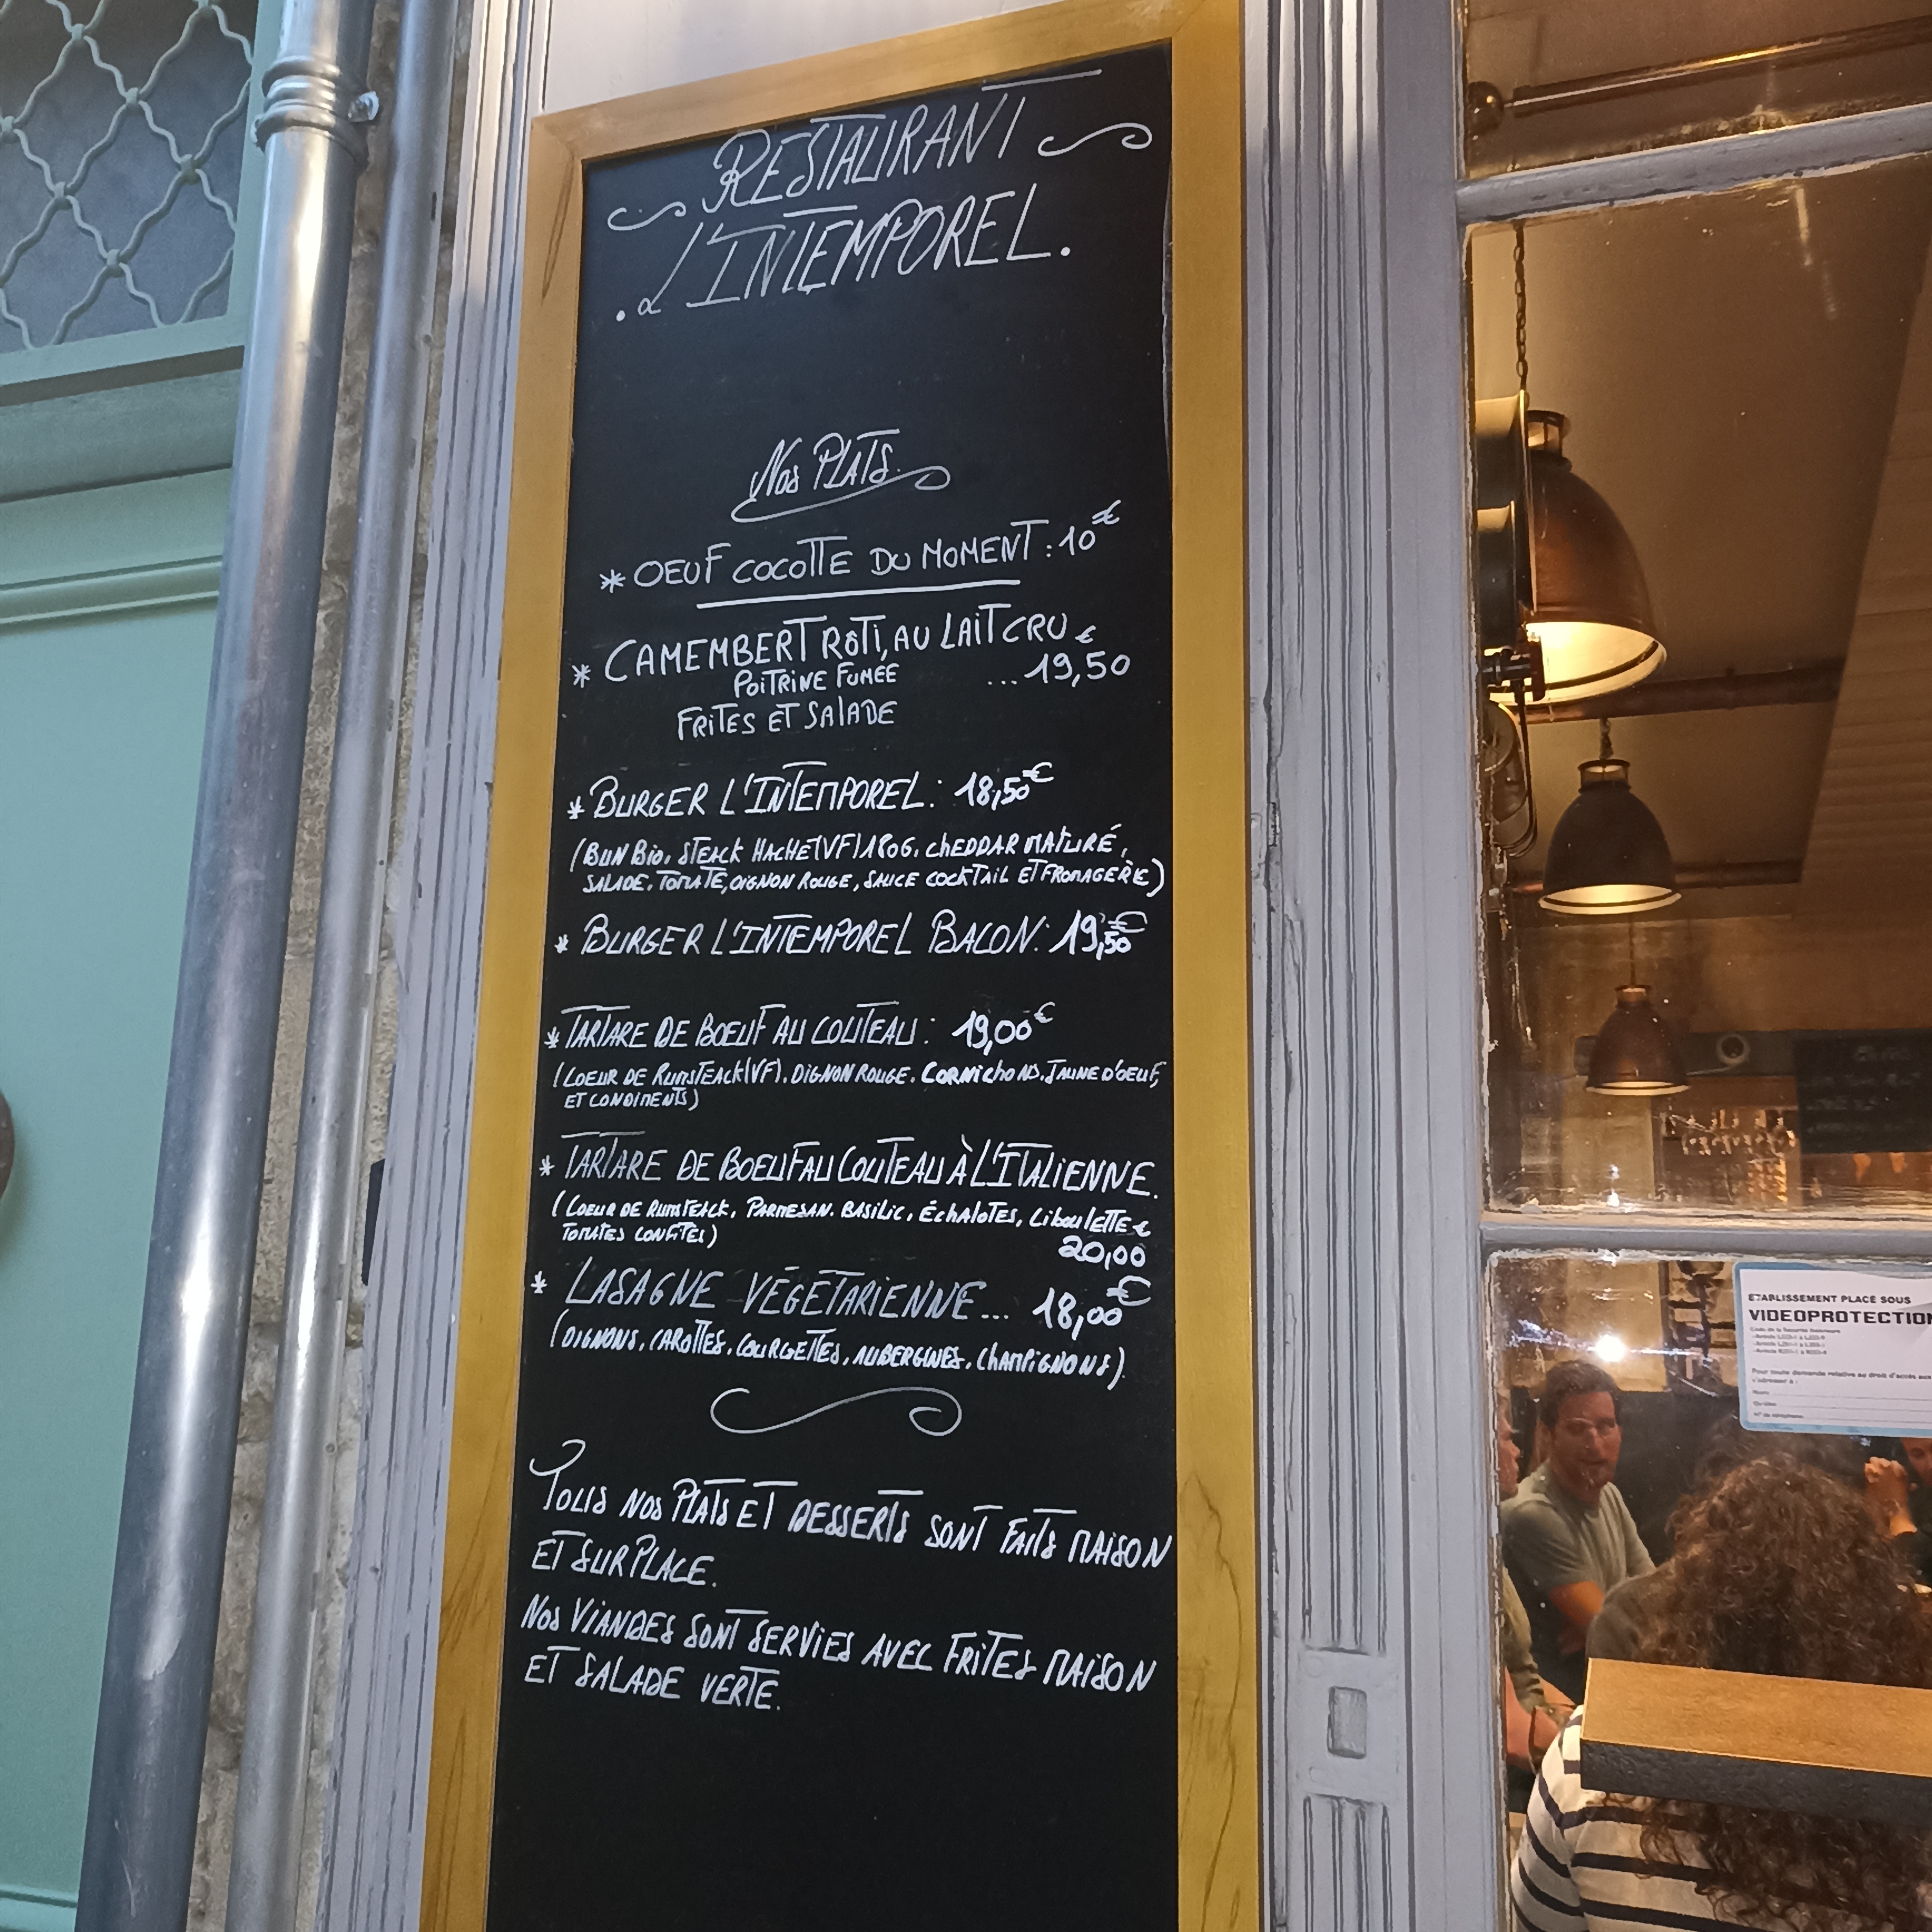 RESTAURANT
L'INTEMPOREL.
NOS PLATS.
* OEUF COCOTTE DU MOMENT : 10€
* CAMEMBERT RÔTI, AU LAIT CRU €
POITRINE FUMÉE ...19,50
FRITES ET SALADE
* BURGER L'INTEMPOREL : 18,50€
(BUN BIO, STEACK HACHÉ (VF) 180G, CHEDDAR MATURÉ,
SALADE, TOMATE, OIGNON ROUGE, SAUCE COCKTAIL ET FROMAGÈRE)
* BURGER L'INTEMPOREL BACON : 19,50€
* TARTARE DE BOEUF AU COUTEAU : 19,00€
(COEUR DE RUMSTEACK (VF), OIGNON ROUGE, CORNICHONS, JAUNE D'OEUF,
ET CONDIMENTS)
* TARTARE DE BOEUF AU COUTEAU À L'ITALIENNE.
(COEUR DE RUMSTEACK, PARMESAN, BASILIC, ÉCHALOTES, CIBOULETTE €
TOMATES CONFITES) 20,00
* LASAGNE VÉGÉTARIENNE... 18,00€
(OIGNONS, CAROTTES, COURGETTES, AUBERGINES, CHAMPIGNONS)
TOUS NOS PLATS ET DESSERTS SONT FAITS MAISON
ET SUR PLACE.
NOS VIANDES SONT SERVIES AVEC FRITES MAISON
ET SALADE VERTE.
ETABLISSEMENT PLACÉ SOUS
VIDEOPROTECTION
Code de la Sécurité Intérieure
Pour toute demande relative au droit d'accès aux
s'adresser à :
Nom
Qualité
N° de téléphone